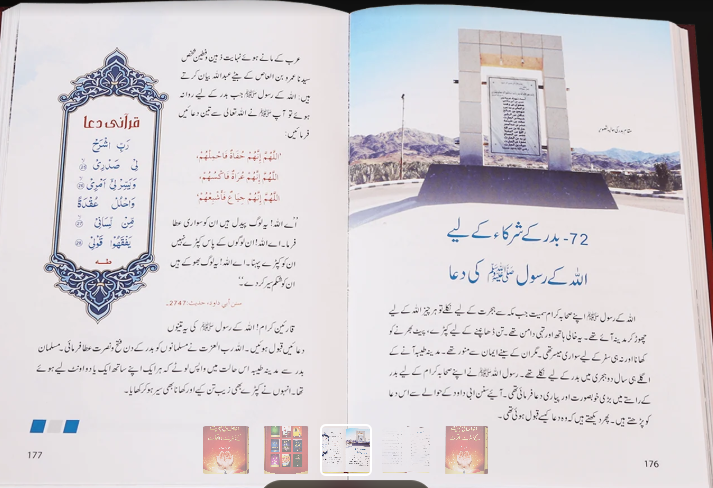 مقام بدر کی حالیہ تصویر
72- بدر کے شرکاء کے لیے
اللہ کے رسول ﷺ کی دعا
اللہ کے رسول ﷺ اپنے صحابہ کرام سمیت جب مکہ سے ہجرت کے لیے نکلے تو ہر چیز اللہ کے لیے
چھوڑ کر مدینہ آئے تھے۔ یہ خالی ہاتھ اور تہی دامن تھے۔ تن ڈھانپنے کے لیے کپڑے، پیٹ بھرنے کو
کھانا اور نہ ہی سفر کے لیے سواری میسر تھی۔ مگر ان کے سینے ایمان سے منور تھے۔ مدینہ طیبہ آنے کے
اگلے ہی سال دو ہجری میں بدر کے لیے نکلے تھے۔ رسول اللہ ﷺ نے اپنے صحابہ کرام کے لیے بدر
کے راستے میں بڑی خوبصورت اور پیاری دعا فرمائی تھی۔ آئیے سنن ابی داود کے حوالے سے اس دعا
کو پڑھتے ہیں۔ پھر دیکھتے ہیں کہ وہ دعا کیسے قبول ہوئی تھی۔
176
عرب کے مانے ہوئے نہایت ذہین و فطین شخص
سیدنا عمرو بن العاص کے بیٹے عبداللہ بیان کرتے
ہیں: اللہ کے رسول ﷺ جب بدر کے لیے روانہ
ہوئے تو آپ ﷺ نے اللہ تعالی سے تین دعائیں
فرمائیں:
اللَّهُمَّ إِنَّهُمْ حُفَاةٌ فَاحْمِلْهُمْ،
اللَّهُمَّ إِنَّهُمْ عُرَاةٌ فَاكْسُهُمْ،
اللَّهُمَّ إِنَّهُمْ جِيَاعٌ فَأَشْبِعْهُمْ
”اے اللہ! یہ لوگ پیدل ہیں ان کو سواری عطا
فرما۔ اے اللہ! ان لوگوں کے پاس کپڑے نہیں
ان کو کپڑے پہنا۔ اے اللہ! یہ لوگ بھوکے ہیں
ان کو شکم سیر کر دے۔“
سنن أبي داود، حديث: 2747۔
قارئین کرام! اللہ کے رسول ﷺ کی یہ تینوں
دعائیں قبول ہوئیں۔ اللہ رب العزت نے مسلمانوں کو بدر کے دن فتح و نصرت عطا فرمائی۔ مسلمان
بدر سے مدینہ طیبہ اس حالت میں واپس لوٹے کہ ہر ایک اپنے ساتھ ایک یا دو اونٹ لیے ہوئے
تھا۔ انہوں نے کپڑے بھی زیب تن کیے اور کھانا بھی سیر ہو کر کھایا۔
قرآنی دعا
رَبِّ اشْرَحْ
لِي صَدْرِي ﴿25﴾
وَيَسِّرْ لِي أَمْرِي ﴿26﴾
وَاحْلُلْ عُقْدَةً
مِّن لِّسَانِي ﴿27﴾
يَفْقَهُوا قَوْلِي ﴿28﴾
طه
177